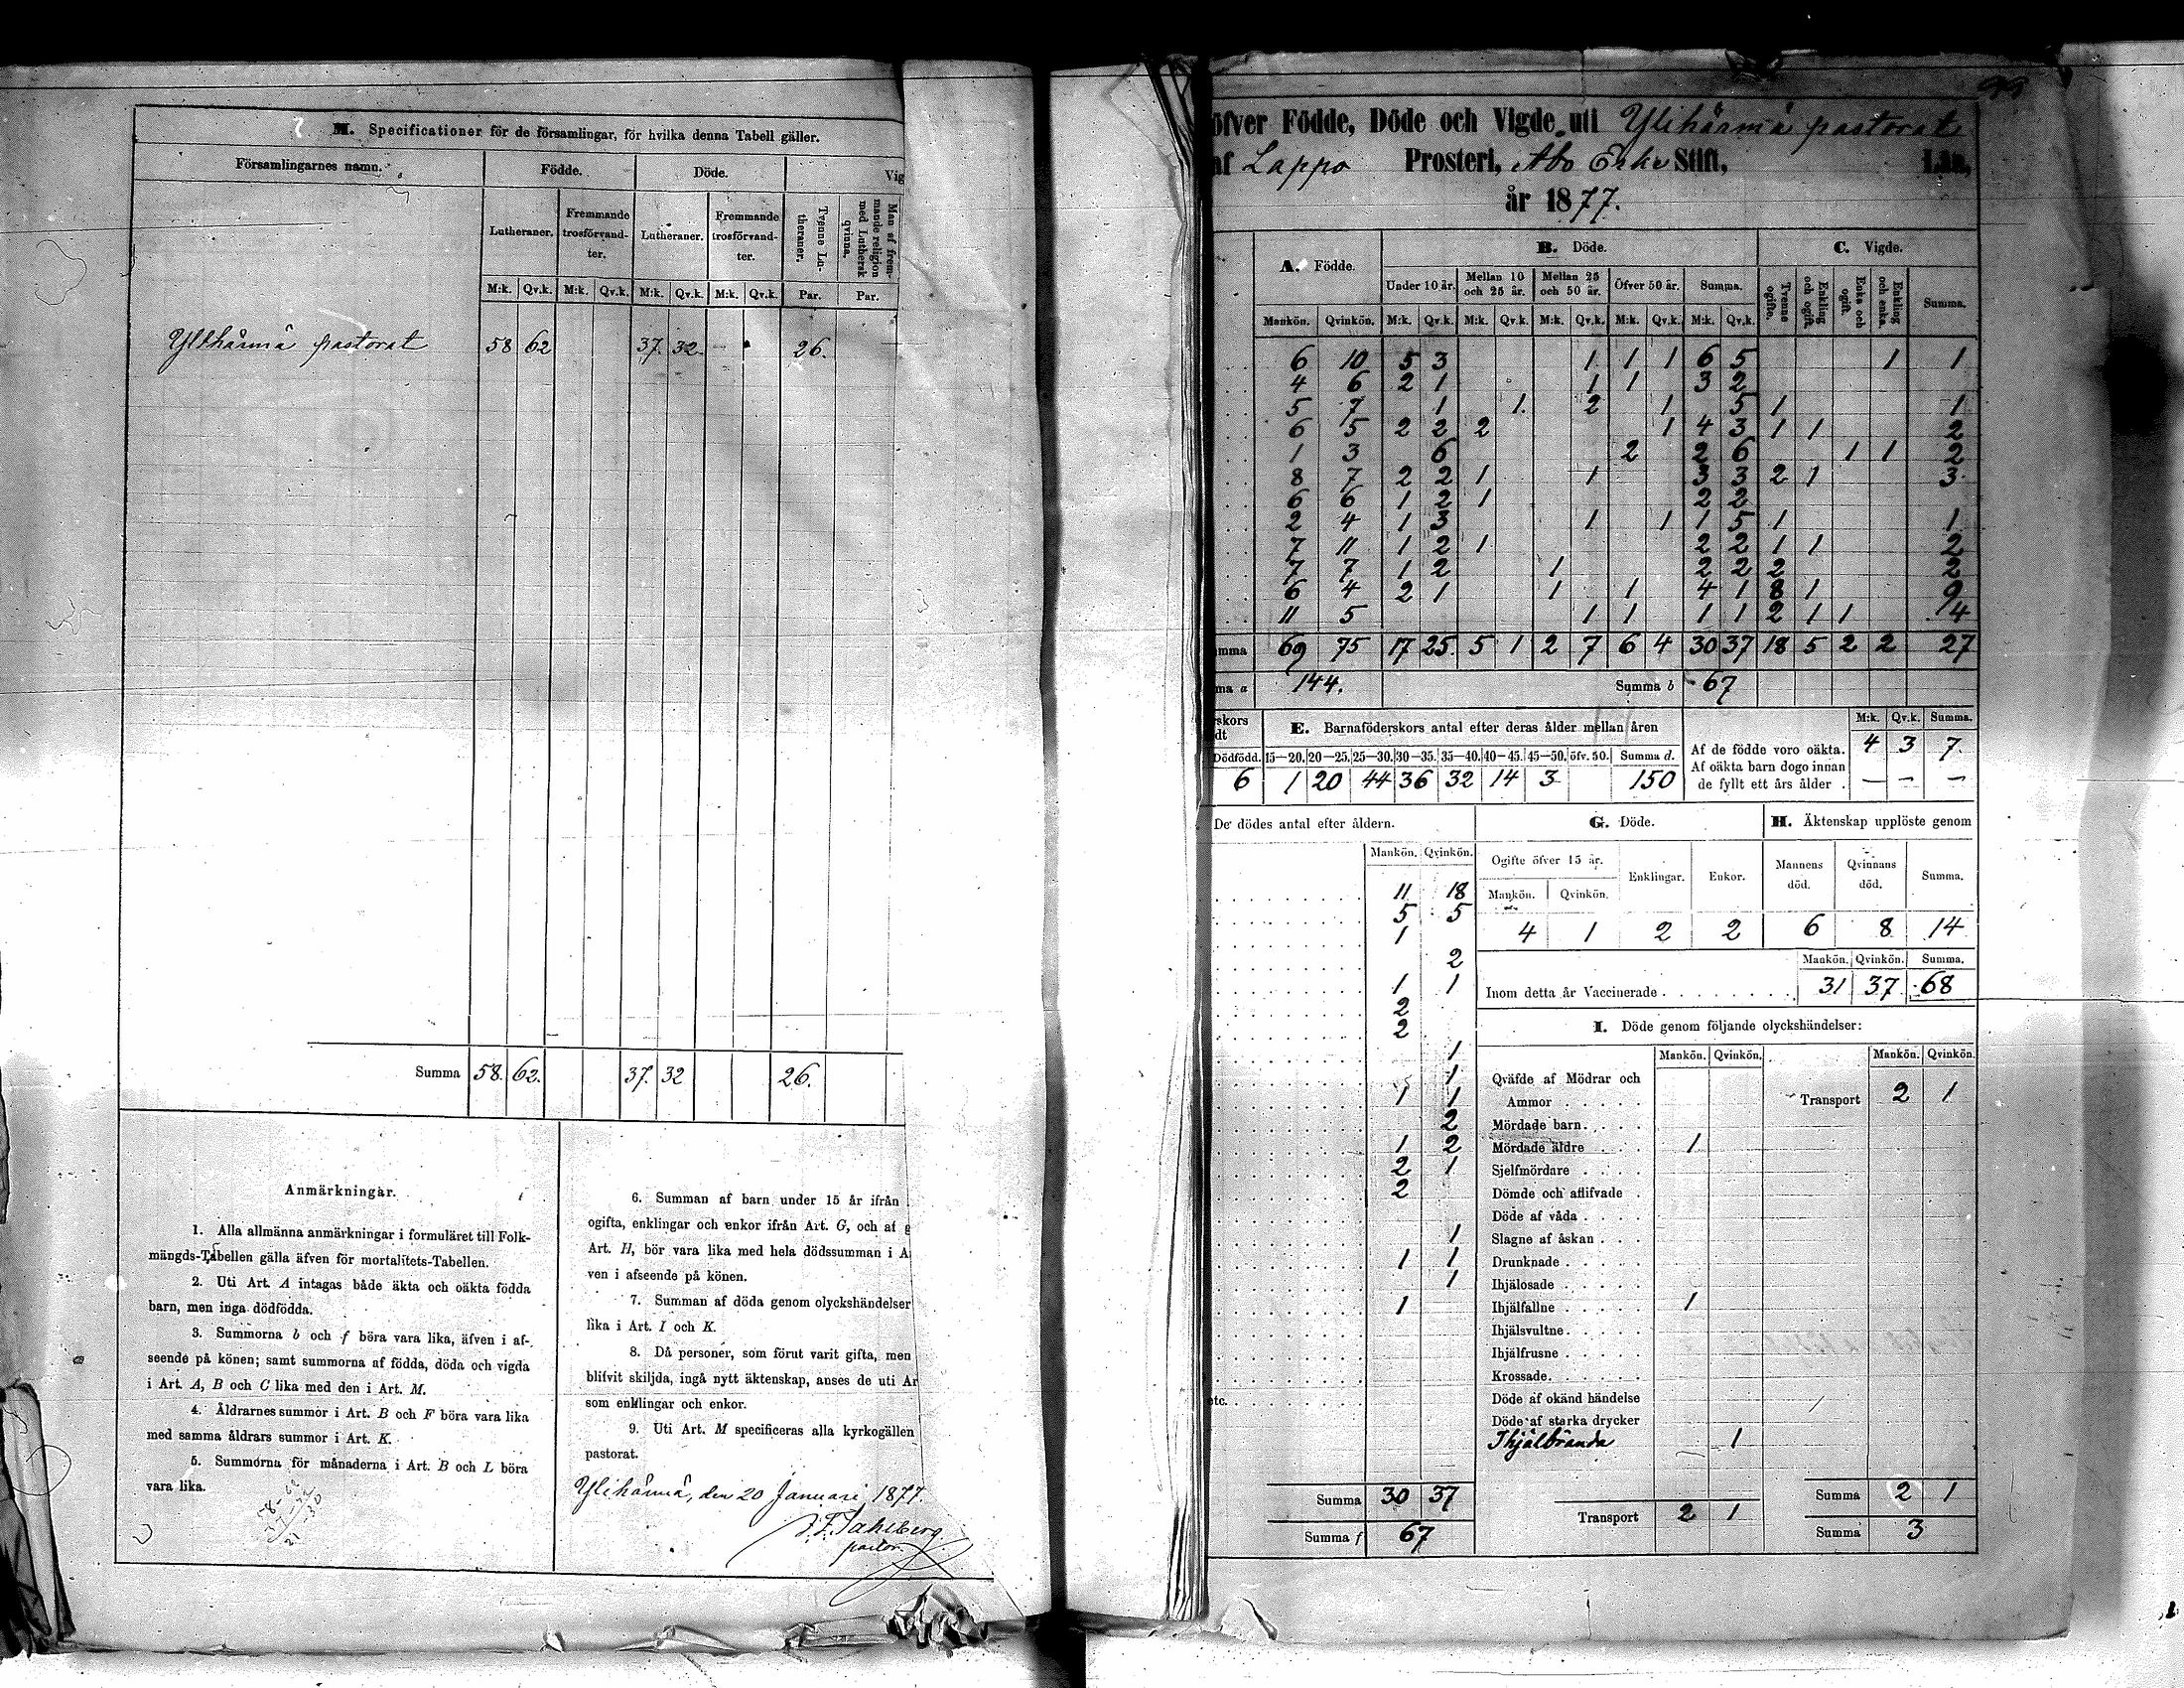 M. Specificationer för de församlingar, för hvilka denna Tabell gäller.
Församlingarnes namn.
Födde.
Döde.
Vig
Lutheraner.
Fremmande trosförvandter.
Lutheraner.
Fremmande trosförvandter.
Tvenne Lutheraner.
Man af fremmande religion med Luthersk qvinna.
M:k. Qv.k. M:k. Qv.k. M:k. Qv.k. M:k. Qv.k. Par. Par.
Ylihärmä pastorat 58 62 37. 32. 26.
Summa 58. 62. 37. 32 26.
Anmärkningar.
1. Alla allmänna anmärkningar i formuläret till Folk-
mängds-Tabellen gälla äfven för mortalitets-Tabellen.
2. Uti Art. A intagas både äkta och oäkta födda
barn, men inga dödfödda.
3. Summorna b och f böra vara lika, äfven i af-
seende på könen; samt summorna af födda, döda och vigda
i Art. A, B och C lika med den i Art. M.
4. Åldrarnes summor i Art. B och F böra vara lika
med samma åldrars summor i Art. K.
5. Summorna för månaderna i Art. B och L böra
vara lika.
58-62
37-32
21-30
6. Summan af barn under 15 år ifrån
ogifta, enklingar och enkor ifrån Art. G, och af g
Art. H, bör vara lika med hela dödssumman i A
ven i afseende på könen.
7. Summan af döda genom olyckshändelser
lika i Art. I och K.
8. Då personer, som förut varit gifta, men
blifvit skiljda, ingå nytt äktenskap, anses de uti Ar
som enklingar och enkor.
9. Uti Art. M specificeras alla kyrkogällen
pastorat.
Ylihärmä, den 20 Januari 1877.
pastor.
öfver Födde, Döde och Vigde uti Ylihärmä pastorat
af Lappo Prosteri, Åbo Erke Stift, Län,
år 1877.
A. Födde.
B. Döde.
C. Vigde.
Under 10 år. Mellan 10 och 25 år. Mellan 25 och 50 år. Öfver 50 år. Summa.
Tvenne ogifte. Enkling och ogift. Enka och ogift. Enkling och enka. Summa.
Mankön. Qvinkön. M:k. Qv.k. M:k. Qv.k. M:k. Qv.k. M:k. Qv.k. M:k. Qv.k.
6 10 5 3 1 1 1 6 5 1 1
4 6 2 1 1 1 3 2
5 7 1 1. 2 1 5 1 1
6 5 2 2 2 1 4 3 1 1 2
1 3 6 2 2 6 1 1 2
8 7 2 2 1 1 3 3 2 1 3
6 6 1 2 1 2 2
2 4 1 3 1 1 1 5 1 1
7 11 1 2 1 2 2 1 1 2
7 7 1 2 1 2 2 2 2
6 4 2 1 1 1 4 1 8 1 9
11 5 1 1 1 1 2 1 1 4
mma 69 75 17 25. 5 1 2 7 6 4 30 37 18 5 2 2 27
ma a 144. Summa b 67
skors
dt
Dödfödd.
6
E. Barnaföderskors antal efter deras ålder mellan åren
15—20. 20—25. 25—30. 30—35. 35—40. 40—45. 45—50. öfv. 50. Summa d.
1 20 44 36 32 14 3 150
M:k. Qv.k. Summa.
Af de födde voro oäkta. 4 3 7.
Af oäkta barn dogo innan
de fyllt ett års ålder . — — —
De dödes antal efter åldern.
Mankön. Qvinkön.
11 18
5 5
1
2
1 1
2
2
1
1
1 1
2
1 2
2 1
2
1
1 1
1
1
etc.
Summa 30 37
Summa f 67
G. Döde.
Ogifte öfver 15 år.
Mankön. Qvinkön. Enklingar. Enkor.
4 1 2 2
H. Äktenskap upplöste genom
Mannens död. Qvinnans död. Summa.
6 8 14
Mankön. Qvinkön. Summa.
Inom detta år Vaccinerade 31 37 68
I. Döde genom följande olyckshändelser:
Mankön. Qvinkön. Mankön. Qvinkön.
Qväfde af Mödrar och
Ammor
Transport 2 1
Mördade barn
Mördade äldre 1
Sjelfmördare
Dömde och aflifvade
Döde af våda
Slagne af åskan
Drunknade
Ihjälosade
Ihjälfallne 1
Ihjälsvultne
Ihjälfrusne
Krossade
Döde af okänd händelse
Döde af starka drycker
Ihjälbrända 1
Transport 2 1
Summa 2 1
Summa 3